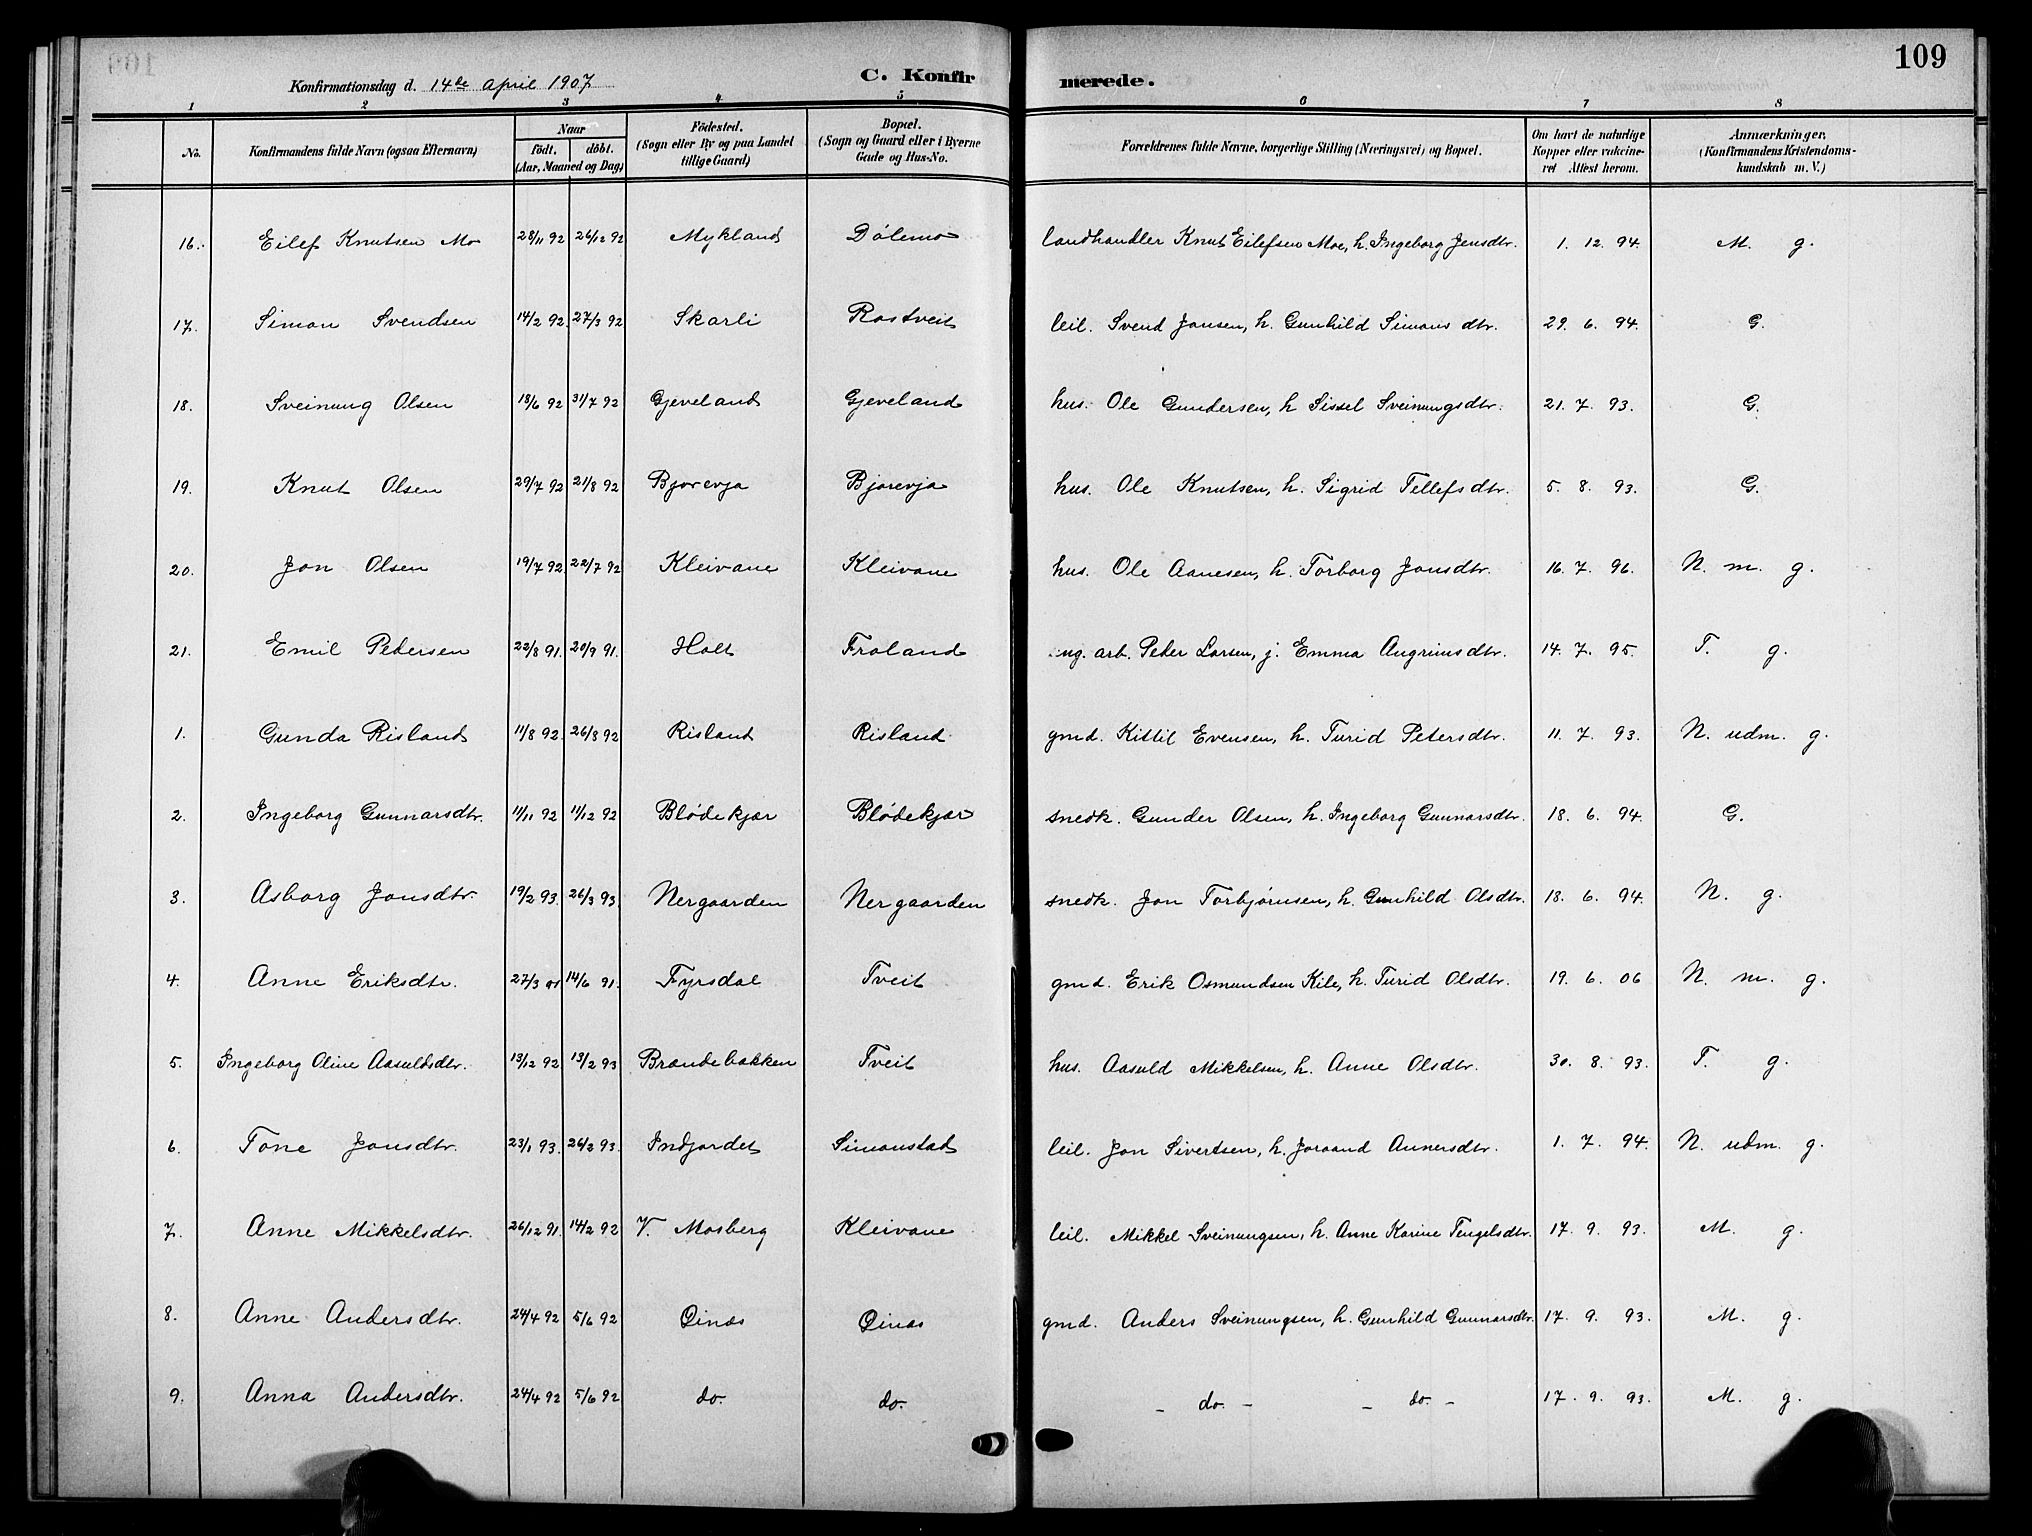 109
Konfirmationsdag d. 14de April 1907
C. Konfirmerede.
1 2 3 4 5 6 7 8
No. Konfirmandens fulde Navn (ogsaa Efternavn) Naar födt. döbt. (Aar, Maaned og Dag) Födested. (Sogn eller By og paa Landet tillige Gaard) Bopæl. (Sogn og Gaard eller i Byerne Gade og Hus-No. Forældrenes fulde Navne, borgerlige Stilling (Næringsvei) og Bopæl. Om havt de naturlige Kopper eller vakcineret Attest herom. Anmærkninger, (Konfirmandens Kristendomskundskab m. V.)
16. Eilef Knutsen Mo 28/11 92 26/12 92 Mykland Dölemo landhandler Knut Eilefsen Moe, h. Ingeborg Jensdtr. 1. 12. 94. M. g.
17. Simon Svendsen 14/2 92. 27/3 92 Skarli Rostveit leil. Svend Jonsen, h. Gunhild Simonsdtr. 29. 6. 94. G.
18. Sveinung Olsen 18/6 92 31/7 92 Gjeveland Gjeveland hus. Ole Gundersen, h Sissel Sveinungsdtr. 21. 7. 93. G.
19. Knut Olsen 29/7 92 21/8 92 Bjorevja Bjorevja hus. Ole Knutsen, h. Sigrid Tellefsdtr. 5. 8. 93. G.
20. Jon Olsen 19/7 92. 22/7 92 Kleivane Kleivane hus. Ole Aanesen, h. Torborg Jonsdtr. 16. 7. 96. N. m. g.
21. Emil Petersen 22/8 91. 20/9 91. Holt Froland ug. arb. Peter Larsen, j. Emma Angrimsdtr. 14. 7. 95. T. g.
1. Gunda Risland 11/8 92. 26/8 92 Risland Risland gmd. Kittil Evensen, h. Turid Petersdtr. 11. 7. 93. N. udm. g.
2. Ingeborg Gunnarsdtr. 11/11 92 11/12 92 Blödekjær Blödekjær snedk. Gunder Olsen, h. Ingeborg Gunnarsdtr. 18. 6. 94. G.
3. Asborg Jonsdtr. 19/2 93. 26/3 93. Nergaarden Nergaarden snedk. Jon Torbjörnsen, h. Gunhild Olsdtr. 18. 6. 94. N. g.
4. Anne Eriksdtr. 27/3 91 14/6 91. Fyrsdal Tveit gmd. Erik Osmundsen Kile, h. Turid Olsdtr. 19. 6. 06 N. m. g.
5. Ingeborg Oline Aasuldsdtr. 13/12 92 13/2 93 Brandebakken Tveit hus. Aasuld Mikkelsen, h. Anne Olsdtr. 30. 8. 93. T. g.
6. Tone Jonsdtr. 23/1 93. 26/2 93. Indjordet Simonstad leil. Jon Sivertsen, h. Joraand Annersdtr. 1. 7. 94. N. udm. g.
7. Anne Mikkelsdtr. 26/12 91. 14/2 92 V. Mosberg Kleivane leil. Mikkel Sveinungsen, h. Anne Karine Tengelsdtr. 17. 9. 93. M. g.
8. Anne Andersdtr. 24/4 92 5/6 92 Öinæs Öinæs gmd. Anders Sveinungsen, h. Gunhild Gunnarsdtr. 17. 9. 93. M. g.
9. Anna Andersdtr. 24/4 92 5/6 92 do. do. – do. – – do. – 17. 9. 93. M. g.